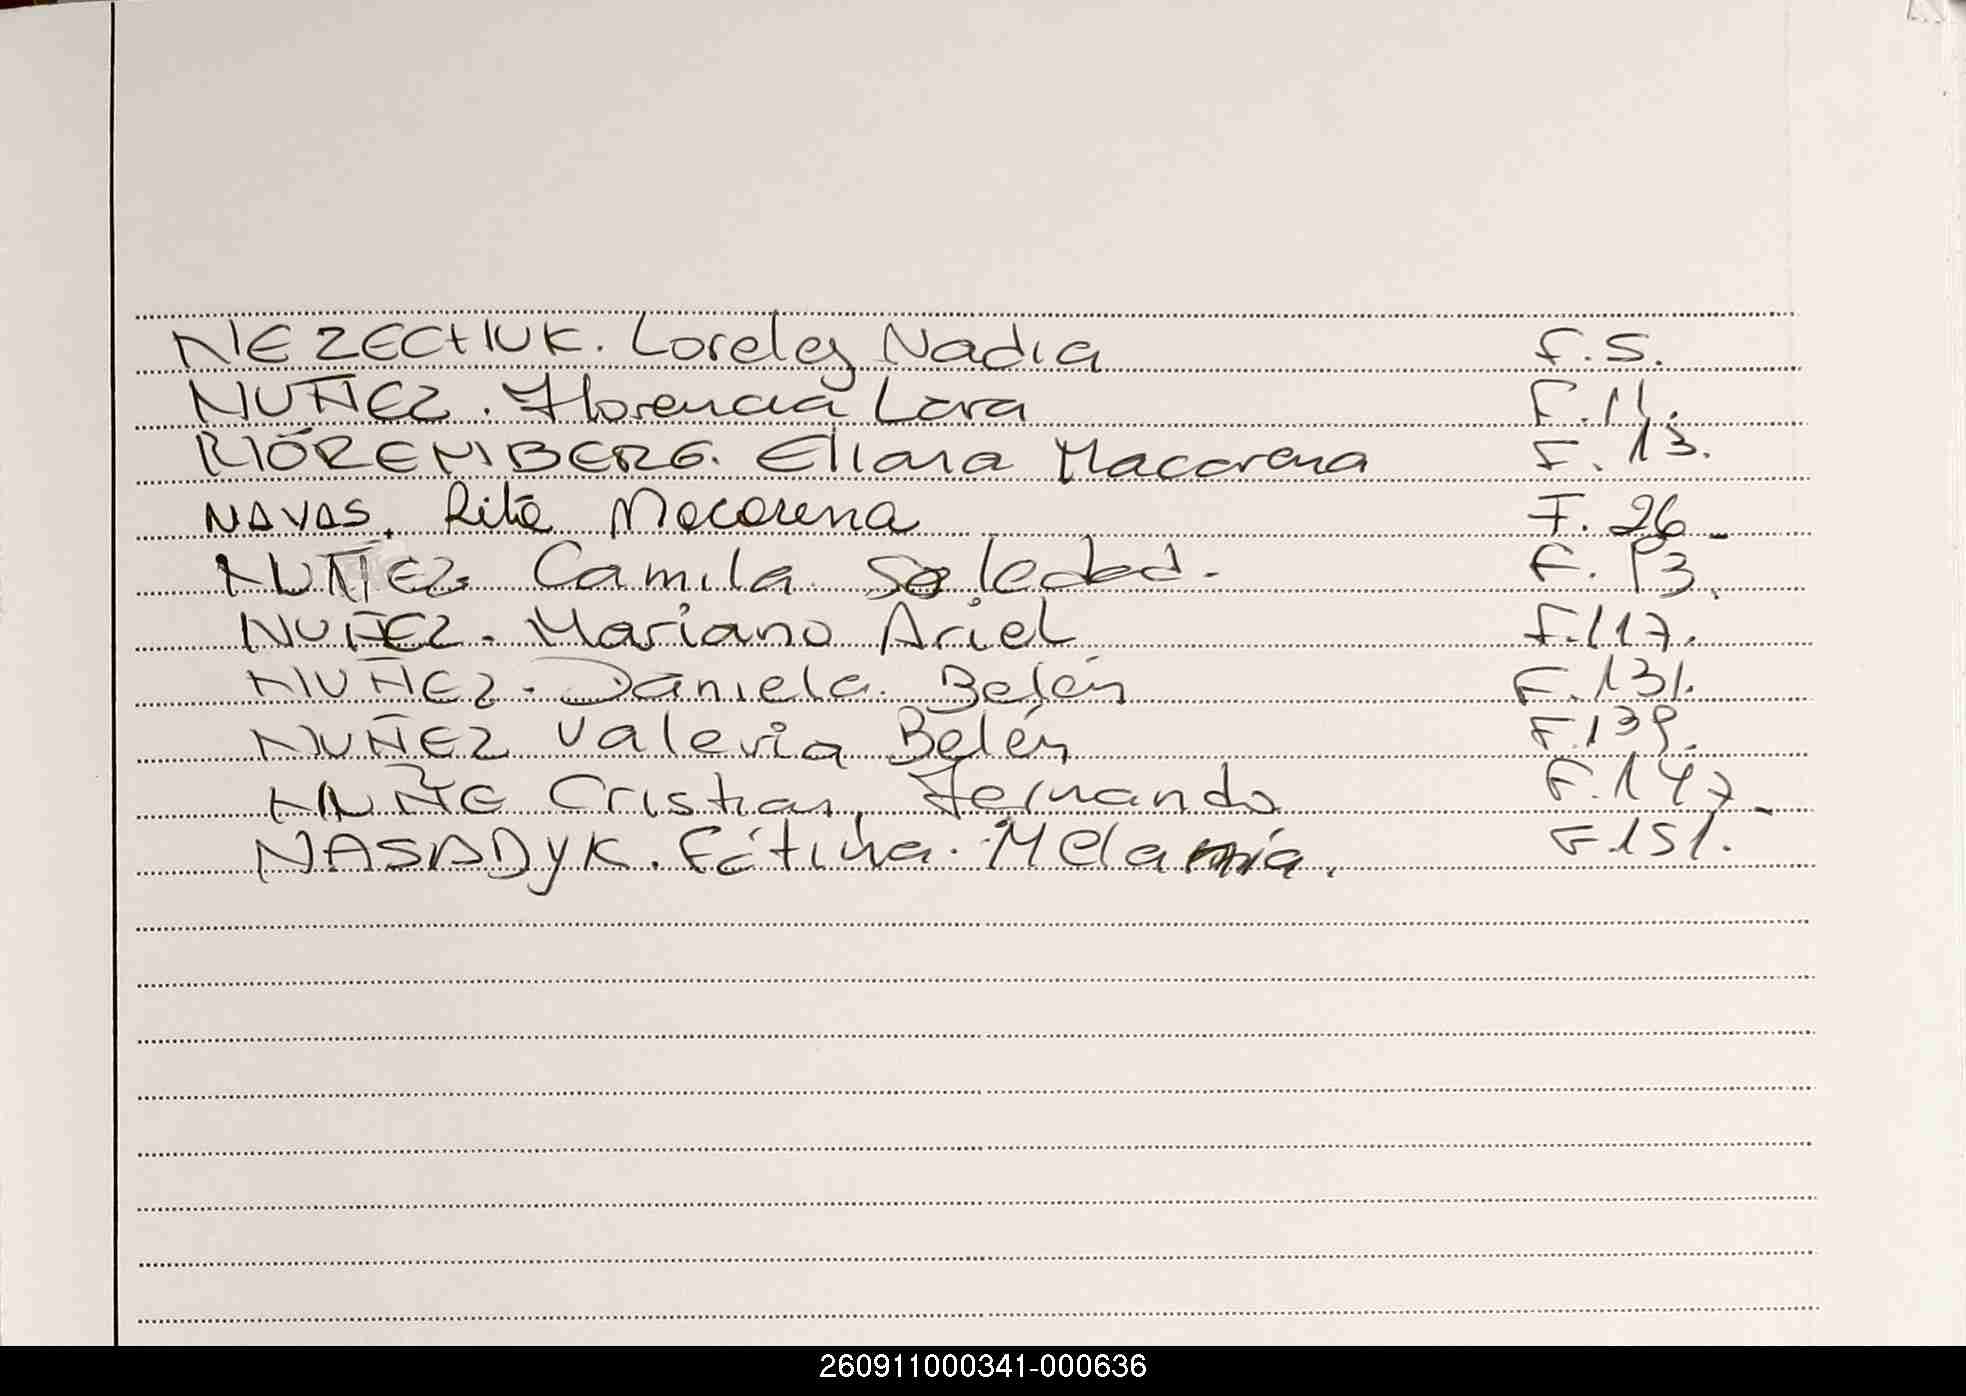 NEZECHUK. Loreley Nadia F.5.
NUÑEZ. Florencia Lara F.11.
NÖREMBERG. Eliana Macarena F.13.
NAVAS. Rita Macarena F.26_
NUÑEZ. Camila Soledad. F.93.
NUÑEZ. Mariano Ariel F.117.
NUÑEZ. Daniela Belén F.131.
NUÑEZ Valeria Belén F.139.
Cristian Fernando F.147_
NASADYK. Fátima. Melania. F.151.
260911000341-000636